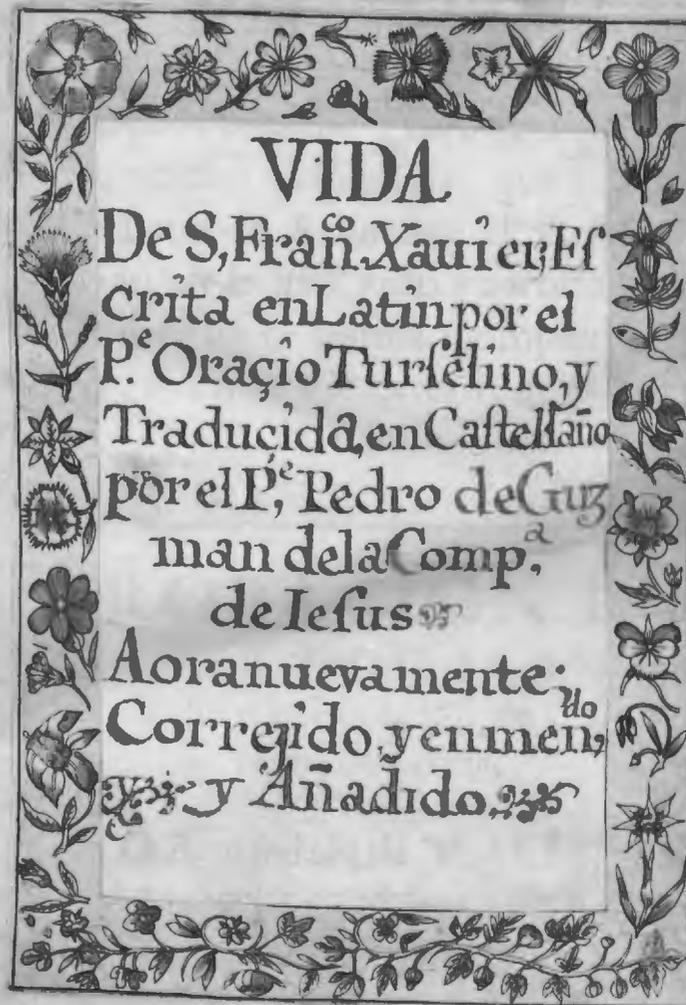 VIDA
De S, Frañ.co Xauier, Eſ
crita en Latin por el
P.e Oraçio Turſelino, y
Traduçida, en Caſtellaño
por el P,e Pedro de Guz
man dela Comp,a
de Ieſus
Aora nuevamente
Correjido, y enmen,do
y Añadido,